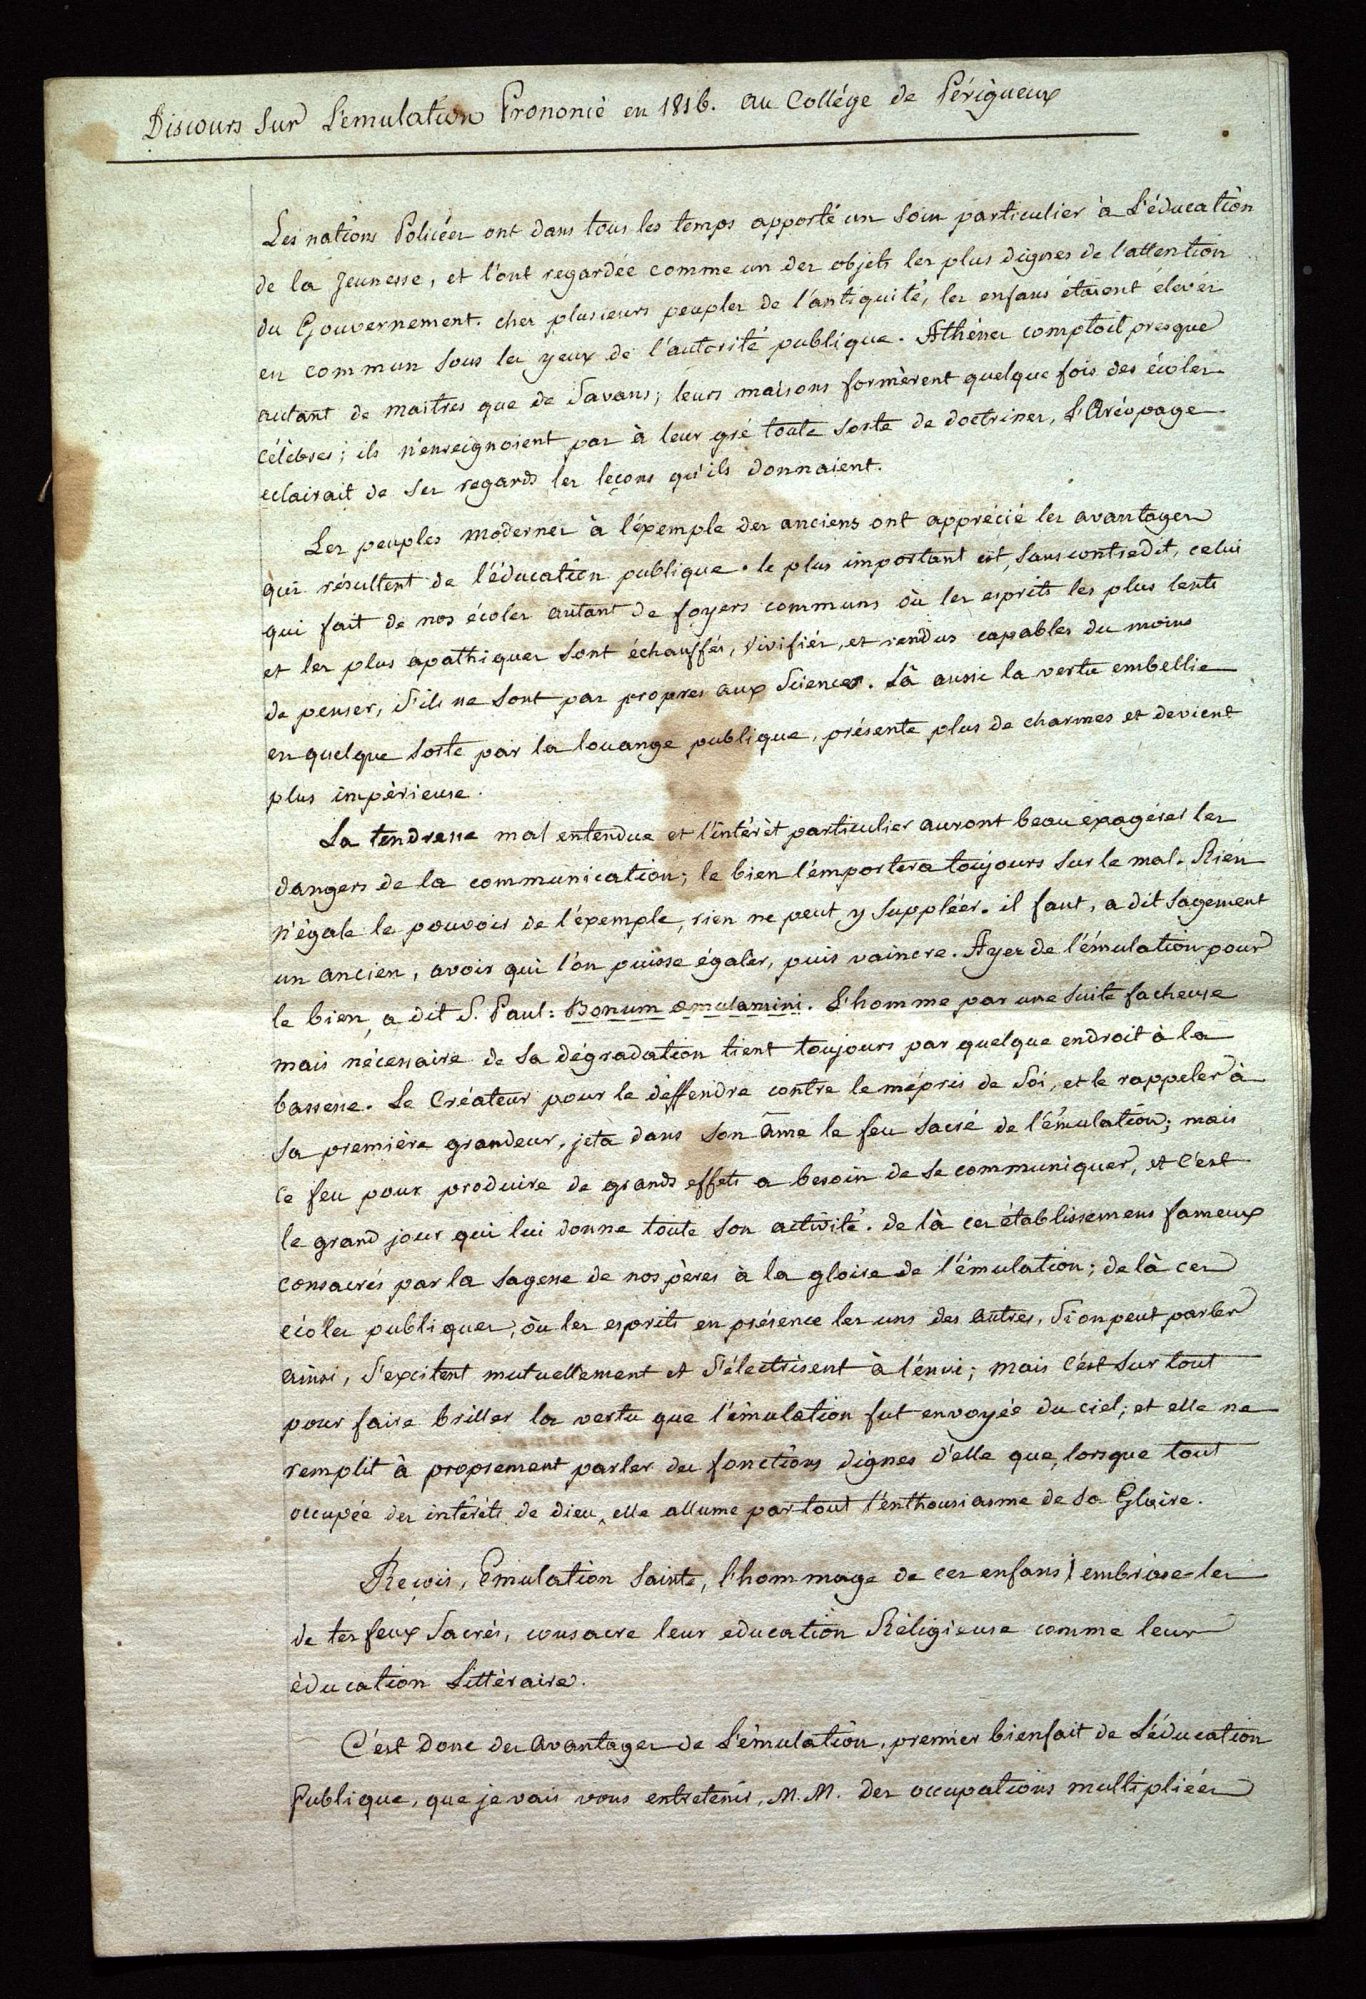 Discours Sur L'emulation Prononcé en 1816. au Collége de Périgueux
Les nations Policées ont dans tous les temps apporté un soin particulier à L'éducation
de la Jeunesse, et l'ont regardée comme un des objets les plus dignes de l'attention
du Gouvernement. chez plusieurs peuples de l'antiquité, les enfans étaient élevés
en commun sous les yeux de l'autorité publique. Athénes comptoit presque
autant de maitres que de Savans; leurs maisons formèrent quelque fois des écoles
célèbres; ils n'enseignoient pas à leur gré toute sorte de doctrines, L'Aréopage
eclairait de ses regards les leçons qu'ils donnaient.
Les peuples modernes à l'éxemple des anciens ont apprécié les avantages
qui résultent de l'éducation publique. le plus important est, sans contredit, celui
qui fait de nos écoles autant de foyers communs où les esprits les plus lents
et les plus apathiques sont échauffés, vivifiés, et rendus capables du moins
de penser, s'ils ne sont pas propres aux Sciences. Là aussi la vertu embellie
en quelque sorte par la louange publique, présente plus de charmes et devient
plus impérieuse.
La tendresse mal entendue et l'intérèt particulier auront beau exagérer les
dangers de la communication; le bien l'emportera toujours sur le mal. Rien
n'égale le pouvoir de l'éxemple, rien ne peut y suppléer. il faut, a dit sagement
un ancien, avoir qui l'on puisse égaler, puis vaincre. Ayez de l'émulation pour
le bien, a dit S. Paul: Bonum æmulamini. L'homme par une suite facheuse
mais nécessaire de sa dégradation tient toujours par quelque endroit à la
bassesse. Le Créateur pour le déffendre contre le mépris de Soi, et le rappeler à
sa première grandeur, jeta dans son âme le feu sacré de l'émulation; mais
ce feu pour produire de grands effets a besoin de se communiquer, et c'est
le grand jour qui lui donne toute son activité. de là ces établissemens fameux
consacrés par la sagesse de nos pères à la gloire de l'émulation; de là ces
écoles publiques, où les esprits en présence les uns des autres, Si on peut parler
ainsi, s'excitent mutuellement et s'électrisent à l'envi; mais c'est sur tout
pour faire briller la vertu que l'émulation fut envoyée du ciel; et elle ne
remplit à proprement parler des fonctions dignes d'elle que, lorsque tout
occupée des intérêts de dieu, elle allume par tout l'enthousiasme de sa Gloire.
Reçois, Emulation sainte, l'hommage de ces enfans! embrâse-les
de tes feux Sacrés, consacre leur education Réligieuse comme leur
éducation Littéraire.
C'est donc des avantages de L'émulation, premier bienfait de L'éducation
Publique, que je vais vous entretenir, M.M. Des occupations multipliées